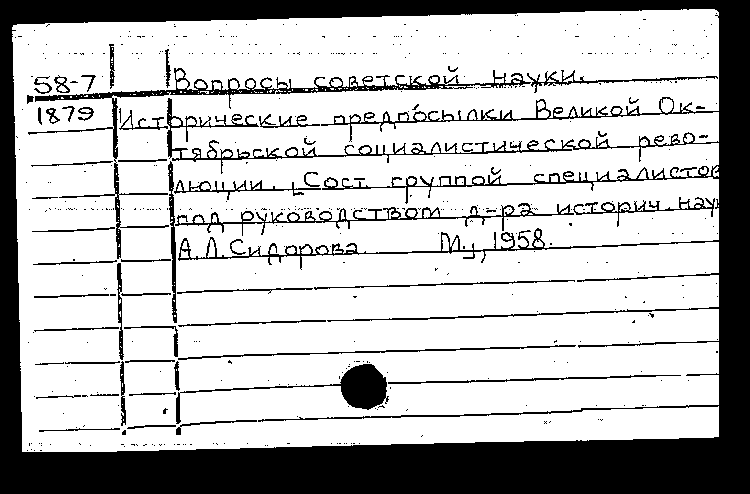 58-7 Вопросы советской науки.
1879 Исторические предпосылки Великой Ок-
тябрьской социалистической рево-
люции. [Сост. группой специалистов
под руководством д-ра историч. наук
А.Л.Сидорова М., 1958.